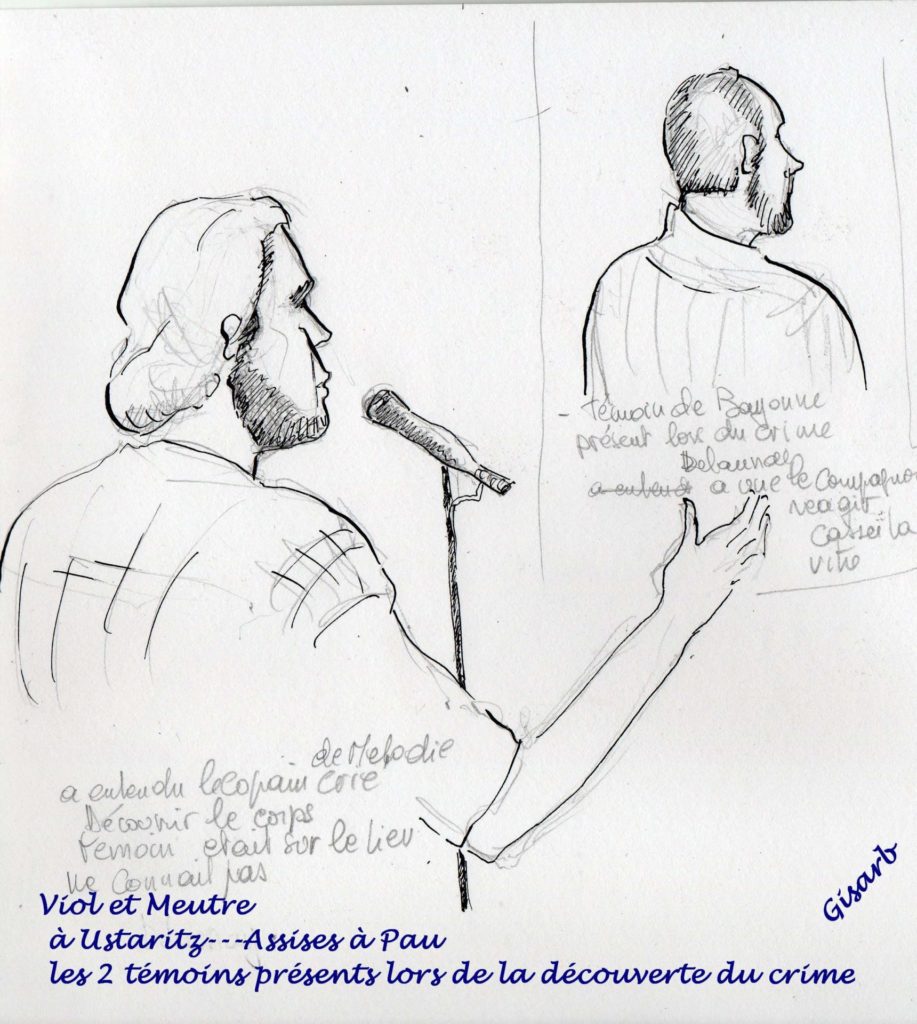 - témoin de Bayonne
présent lors du crime
Delaunay
a entendu a vue le compagnon
reagir
cassé la
vitre
de Melodie
a entendu le copain crie
Découvrir le corps
temoin etait sur le lieu
ne connait pas
Gisarb
Viol et Meutre
à Ustaritz---Assises à Pau
les 2 témoins présents lors de la découverte du crime